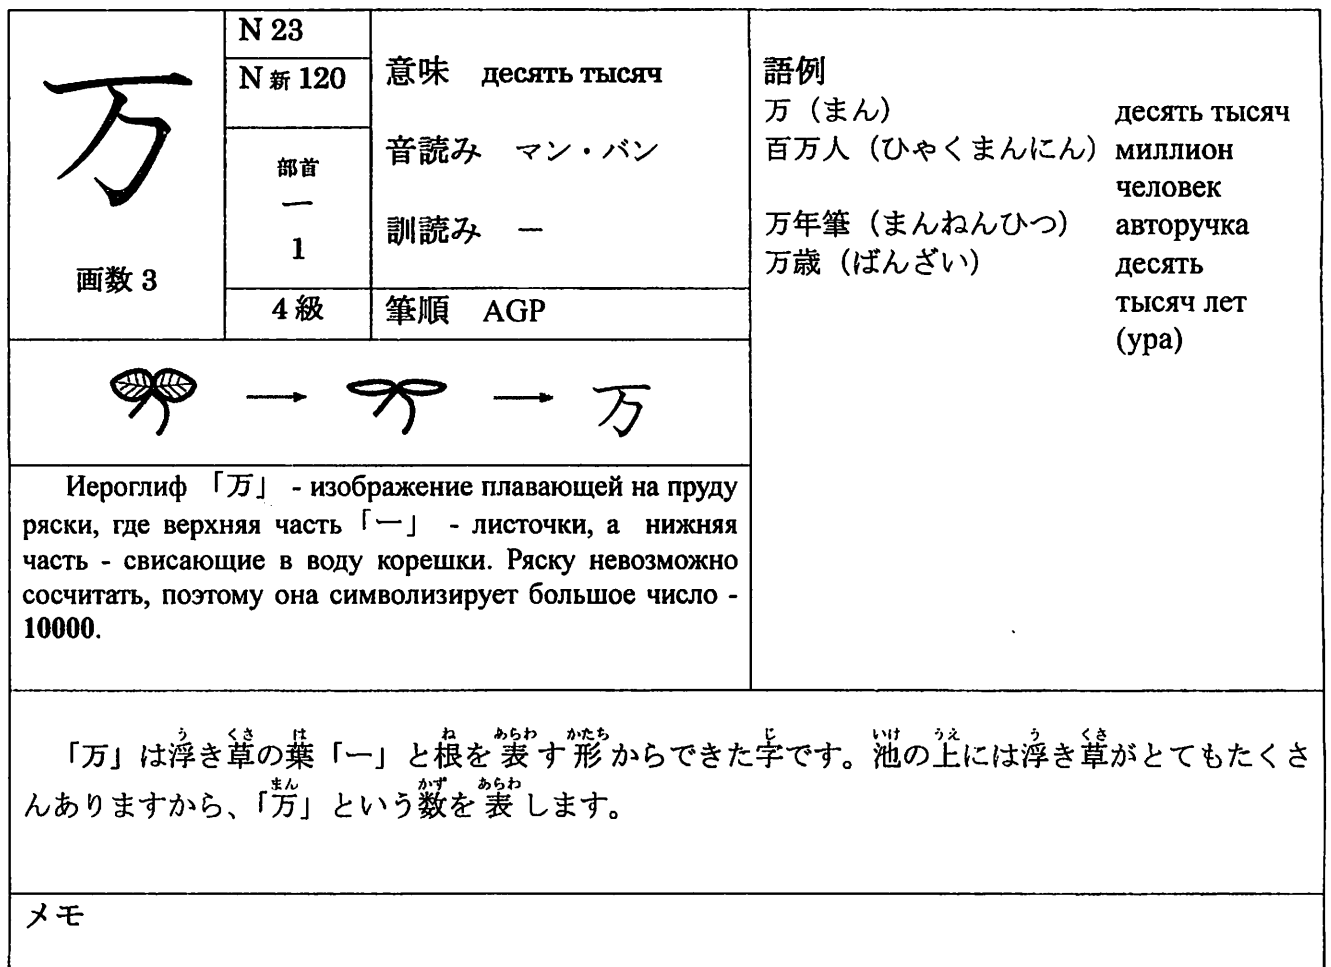 万
画数 3
N 23
N 新 120
部首
一
1
4 級
意味 десять тысяч
音読み マン・バン
訓読み ー
筆順 AGP
語例
万（まん） десять тысяч
百万人（ひゃくまんにん） миллион
человек
万年筆（まんねんひつ） авторучка
万歳（ばんざい） десять
тысяч лет
(ура)
万
Иероглиф 「万」 - изображение плавающей на пруду
ряски, где верхняя часть「一」 - листочки, а нижняя
часть - свисающие в воду корешки. Ряску невозможно
сосчитать, поэтому она символизирует большое число -
10000.
う くさ は ね あらわ かたち じ いけ うえ う くさ
「万」は浮き草の葉「一」と根を表す形からできた字です。池の上には浮き草がとてもたくさ
まん かず あらわ
んありますから、「万」という数を表します。
メモ